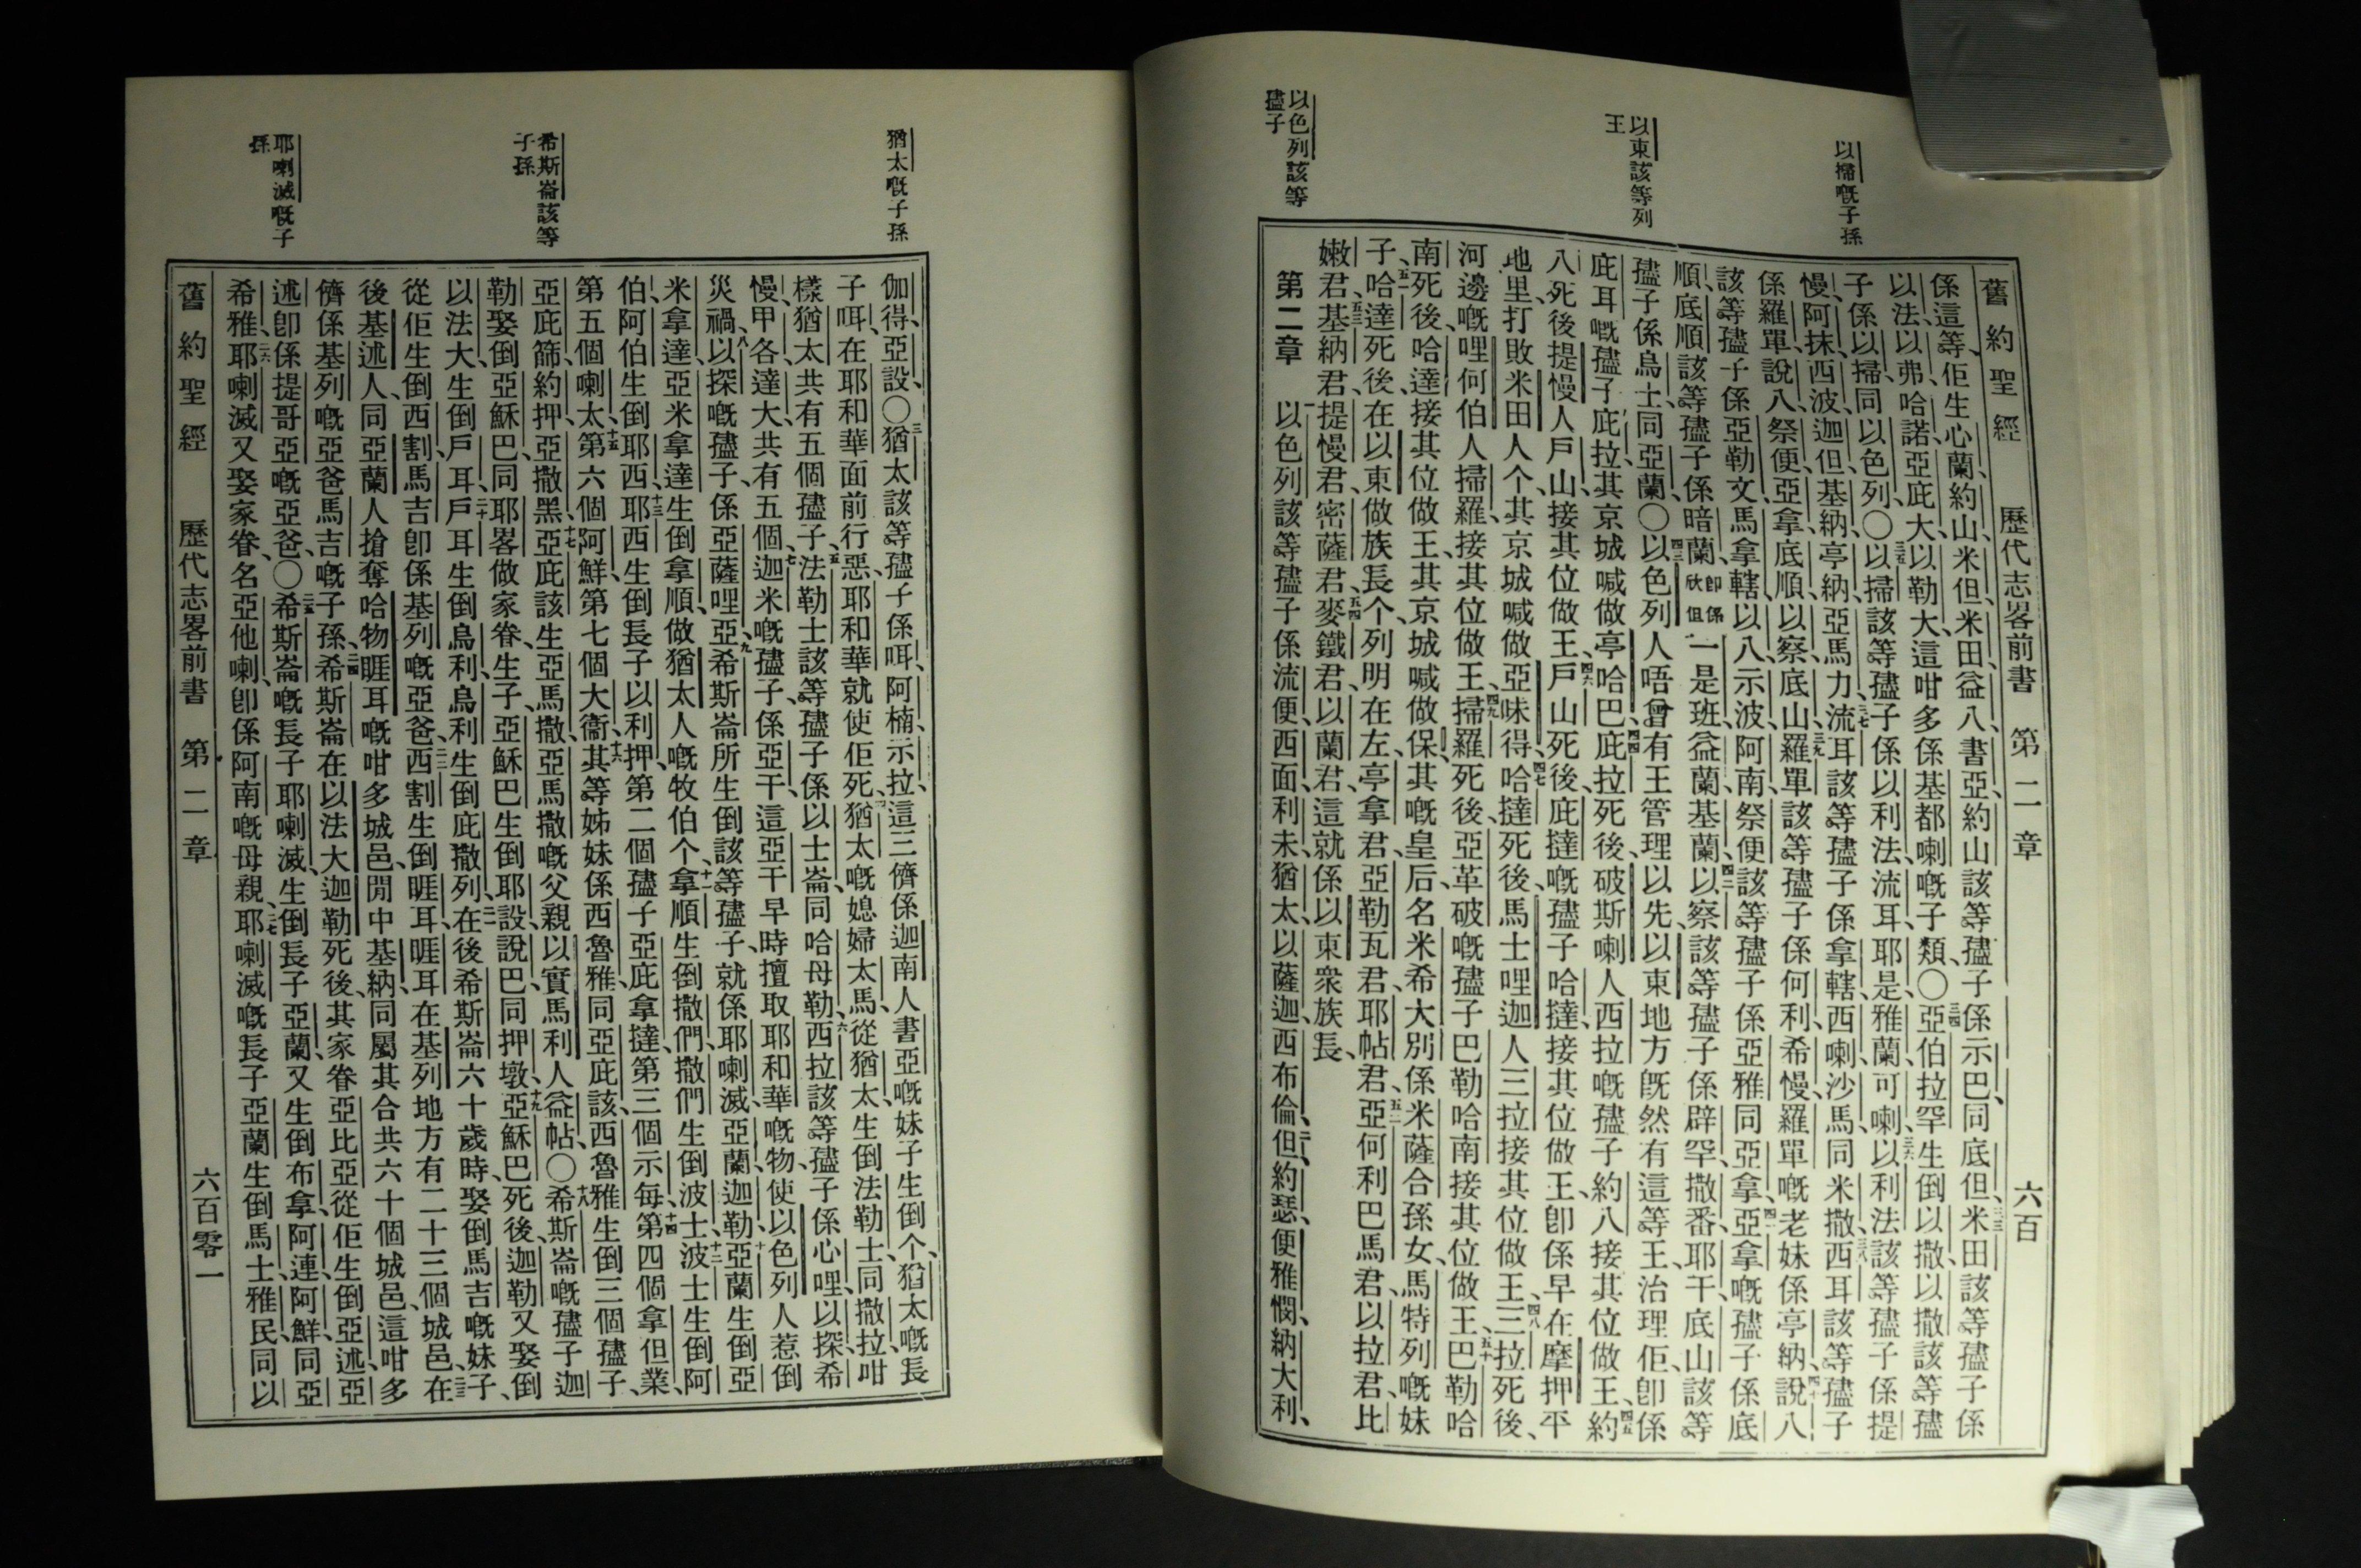 以掃嘅子孫
以東該等列
王
以色列該等
孻子
舊約聖經 歷代志畧前書 第二章 六百
係這等佢生心蘭約山米但米田益八書亞約山該等孻子係示巴同底但米田該等孻子係
以法以弗哈諾亞庇大以勒大這咁多係基都喇嘅子類〇亞伯拉罕生倒以撒以撒該等孻
子係以掃同以色列〇以掃該等孻子係以利法流耳耶是雅蘭可喇以利法該等孻子係提
慢阿抹西波迦但基納亭納亞馬力流耳該等孻子係拿轄西喇沙馬同米撒西耳該等孻子
係羅單說八祭便亞拿底順以察底山羅單該等孻子係何利希慢羅單嘅老妹係亭納說八
該等孻子係亞勒文馬拿轄以八示波阿南祭便該等孻子係亞雅同亞拿亞拿嘅孻子係底
順底順該等孻子係暗蘭卽係欣但一是班益蘭基蘭以察該等孻子係辟罕撒番耶干底山該等
孻子係烏士同亞蘭〇以色列人唔曾有王管理以先以東地方旣然有這等王治理佢卽係
庇耳嘅孻子庇拉其京城喊做亭哈巴庇拉死後破斯喇人西拉嘅孻子約八接其位做王約
八死後提慢人戶山接其位做王戶山死後庇撻嘅孻子哈撻接其位做王卽係早在摩押平
地里打敗米田人个其京城喊做亞味得哈撻死後馬士哩迦人三拉接其位做王三拉死後
河邊嘅哩何伯人掃羅接其位做王掃羅死後亞革破嘅孻子巴勒哈南接其位做王巴勒哈
南死後哈達接其位做王其京城喊做保其嘅皇后名米希大別係米薩合孫女馬特列嘅妹
子哈達死後在以東做族長个列明在左亭拿君亞勒瓦君耶帖君亞何利巴馬君以拉君比
嫩君基納君提慢君密薩君麥鐵君以蘭君這就係以東衆族長
第二章 以色列該等孻子係流便西面利未猶太以薩迦西布倫但約瑟便雅憫納大利
猶太嘅子孫
希斯崙該等
子孫
耶喇滅嘅子
孫
伽得亞設〇猶太該等孻子係咡阿楠示拉這三儕係迦南人書亞嘅妹子生倒个猶太嘅長
子咡在耶和華面前行惡耶和華就使佢死猶太嘅媳婦太馬從猶太生倒法勒士同撒拉咁
樣猶太共有五個孻子法勒士該等孻子係以士崙同哈母勒西拉該等孻子係心哩以探希
慢甲各達大共有五個迦米嘅孻子係亞干這亞干早時擅取耶和華嘅物使以色列人惹倒
災禍以探嘅孻子係亞薩哩亞希斯崙所生倒該等孻子就係耶喇滅亞蘭迦勒亞蘭生倒亞
米拿達亞米拿達生倒拿順做猶太人嘅牧伯个拿順生倒撒們撒們生倒波士波士生倒阿
伯阿伯生倒耶西耶西生倒長子以利押第二個孻子亞庇拿撻第三個示每第四個拿但業
第五個喇太第六個阿鮮第七個大衞其等姊妹係西魯雅同亞庇該西魯雅生倒三個孻子
亞庇篩約押亞撒黑亞庇該生亞馬撒亞馬撒嘅父親以實馬利人益帖〇希斯崙嘅孻子迦
勒娶倒亞穌巴同耶畧做家眷生子亞穌巴生倒耶設說巴同押墩亞穌巴死後迦勒又娶倒
以法大生倒戶耳戶耳生倒烏利烏利生倒庇撒列在後希斯崙六十歲時娶倒馬吉嘅妹子
從佢生倒西割馬吉卽係基列嘅亞爸西割生倒睚耳睚耳在基列地方有二十三個城邑在
後基述人同亞蘭人搶奪哈物睚耳嘅咁多城邑閒中基納同屬其合共六十個城邑這咁多
儕係基列嘅亞爸馬吉嘅子孫希斯崙在以法大迦勒死後其家眷亞比亞從佢生倒亞述亞
述卽係提哥亞嘅亞爸〇希斯崙嘅長子耶喇滅生倒長子亞蘭又生倒布拿阿連阿鮮同亞
希雅耶喇滅又娶家眷名亞他喇卽係阿南嘅母親耶喇滅嘅長子亞蘭生倒馬士雅民同以
舊約聖經 歷代志畧前書 第二章 六百零一